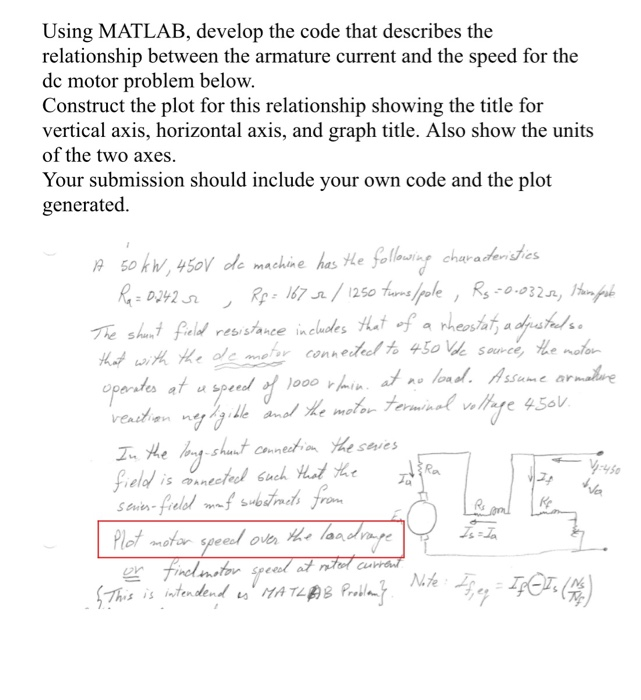 Using MATLAB, develop the code that describes the
relationship between the armature current and the speed for the
dc motor problem below.
Construct the plot for this relationship showing the title for
vertical axis, horizontal axis, and graph title. Also show the units
of the two axes.
Your submission should include your own code and the plot
generated.
A 50 kW, 450V dc machine has the following characteristics
Ra = 0.242 Ω , Rf = 167 Ω / 1250 turns/pole , Rs = 0.032 Ω, 1 turn/pole
The shunt field resistance includes that of a rheostat, adjusted so
that with the dc motor connected to 450 Vdc source, the motor
operates at a speed of 1000 r/min. at no load. Assume armature
reaction negligible and the motor terminal voltage 450V.
In the long-shunt connection the series
field is connected such that the
series-field mmf substracts from
Plot motor speed over the load range
or find motor speed at rated current
{This is intendend as MATLAB Problem}.
Ra
Ia
Ea
Rs
Is = Ia
If
Vt=450
Va
Note: If,eq = If ⊖ Is (Ns/Nf)